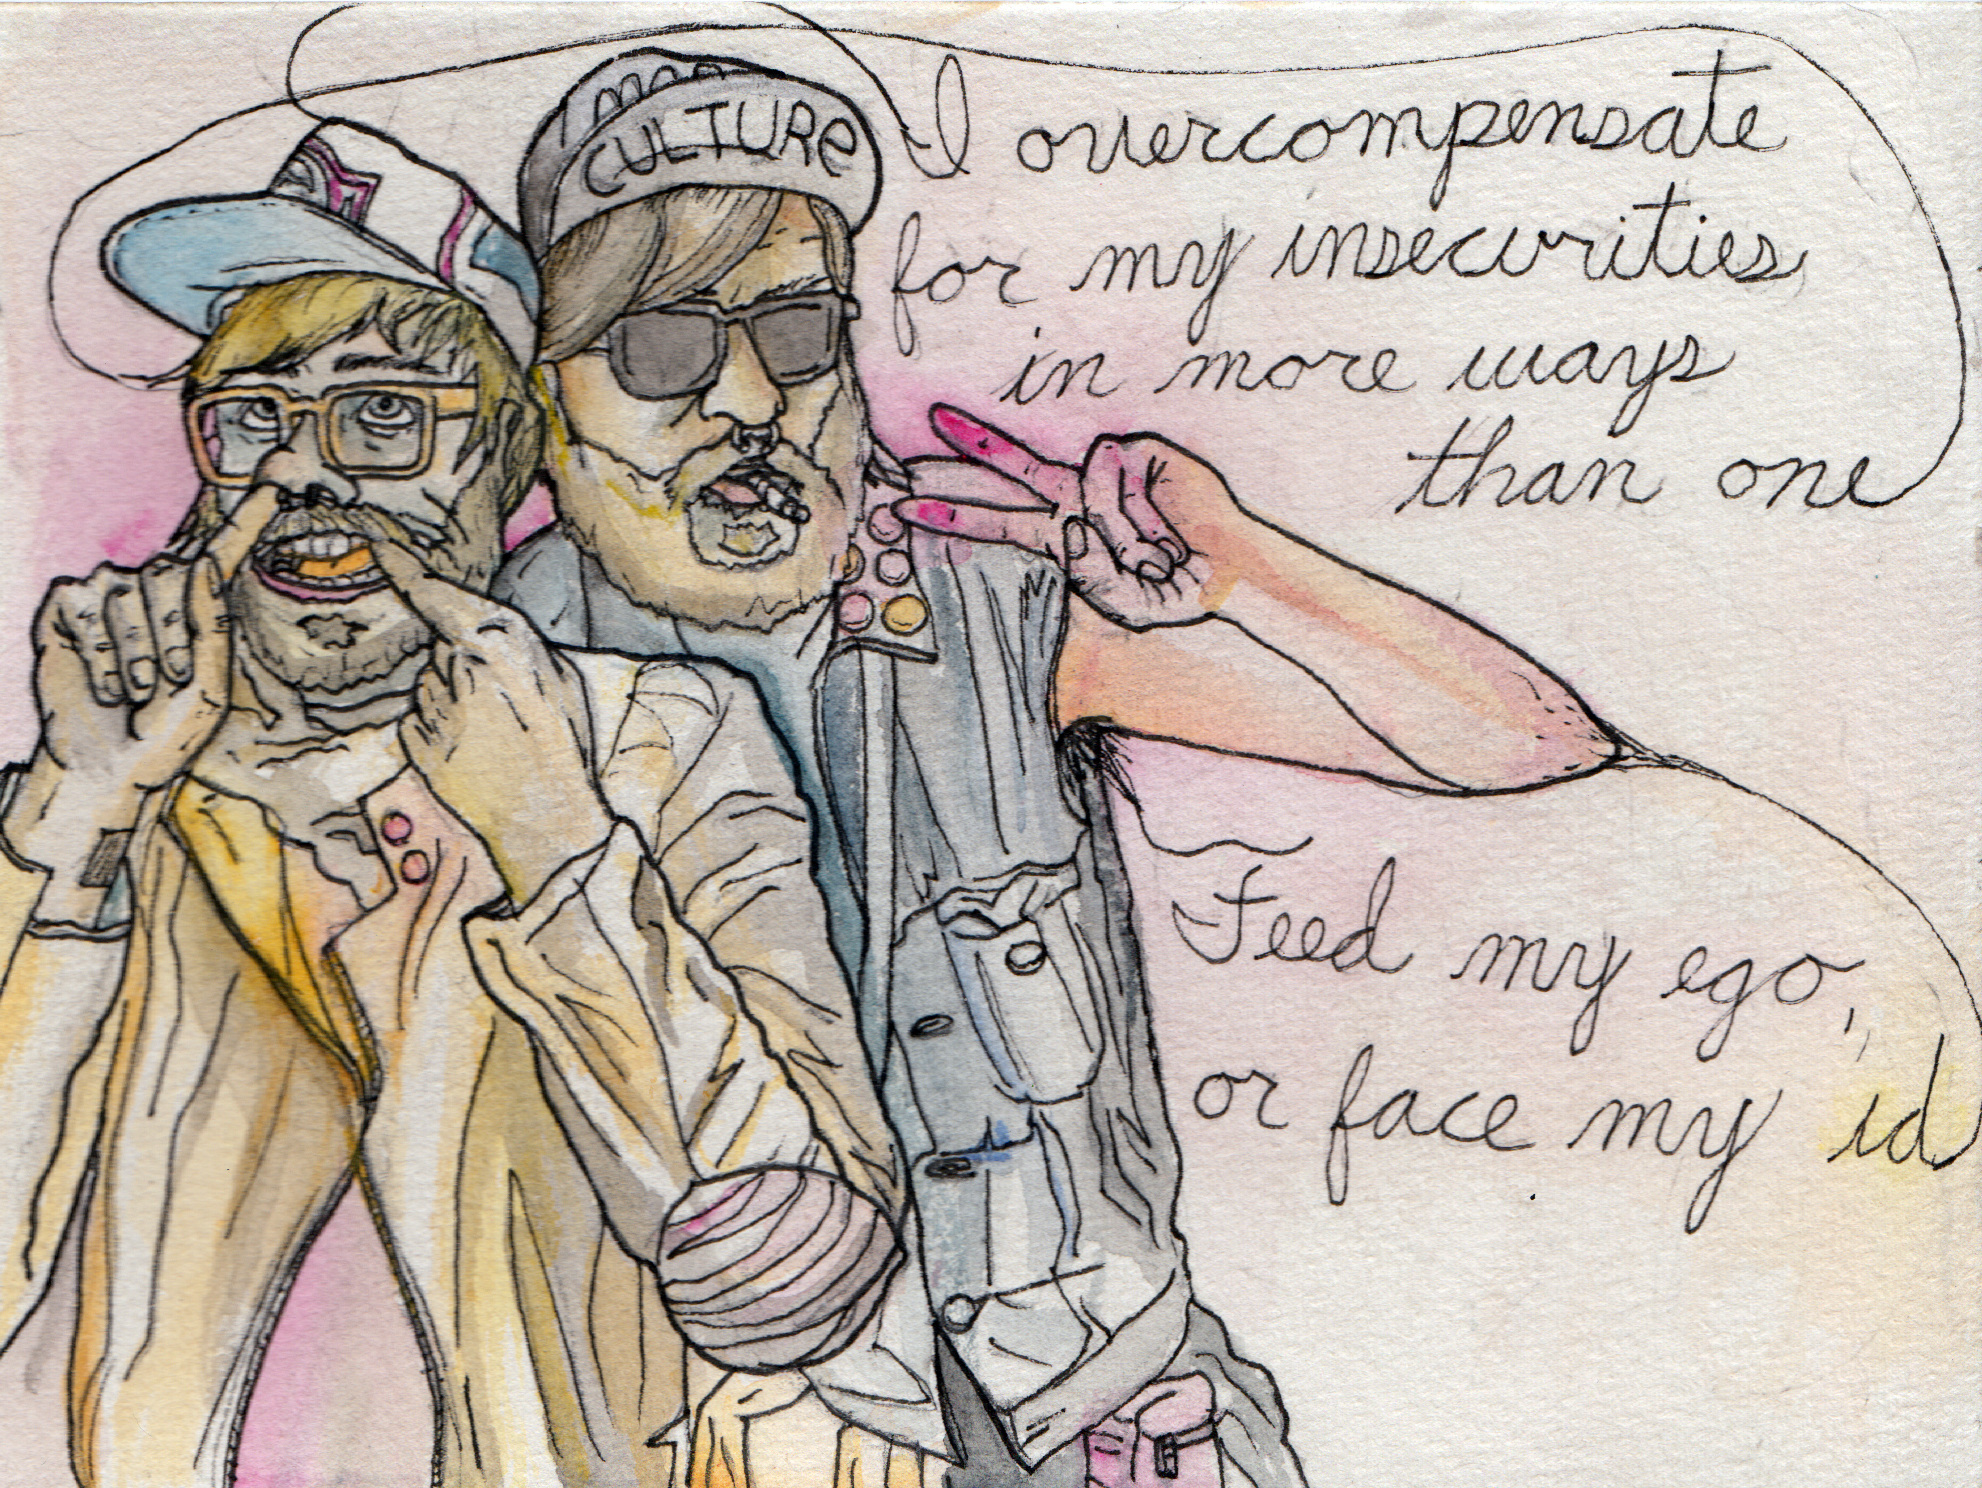 CULTURe
I overcompensate
for my insecurities
in more ways
than one
Feed my ego,
or face my id